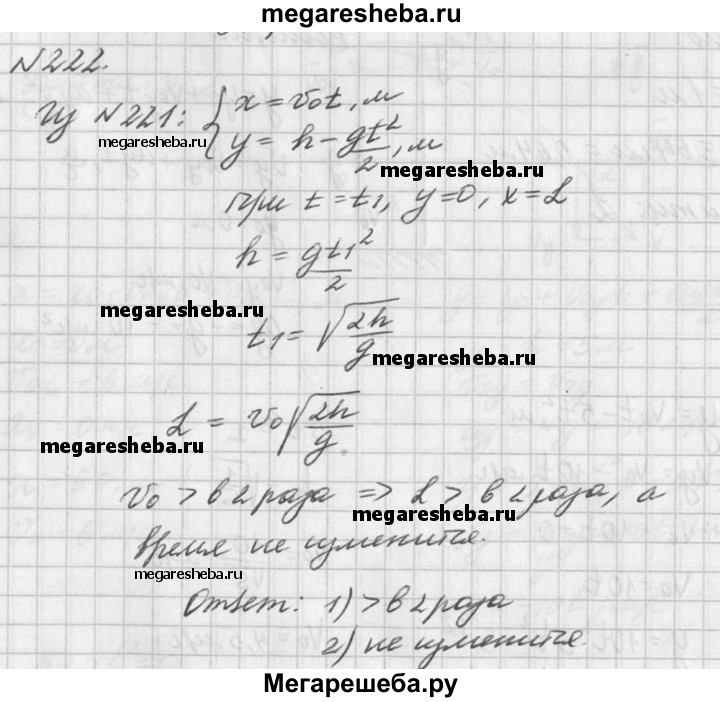 megaresheba.ru
N222.
Из N221: { x = v₀t, м
megaresheba.ru
y = h - gt²/2, м
megaresheba.ru
при t = t₁, y=0, x=L
h = gt₁²/2
megaresheba.ru
t₁ = √(2h/g)
megaresheba.ru
L = v₀√(2h/g).
megaresheba.ru
v₀ > в 2 раза => L > в 2 раза, а
megaresheba.ru
время не изменится.
megaresheba.ru
Ответ: 1) > в 2 раза
2) не изменится.
Мегарешеба.ру